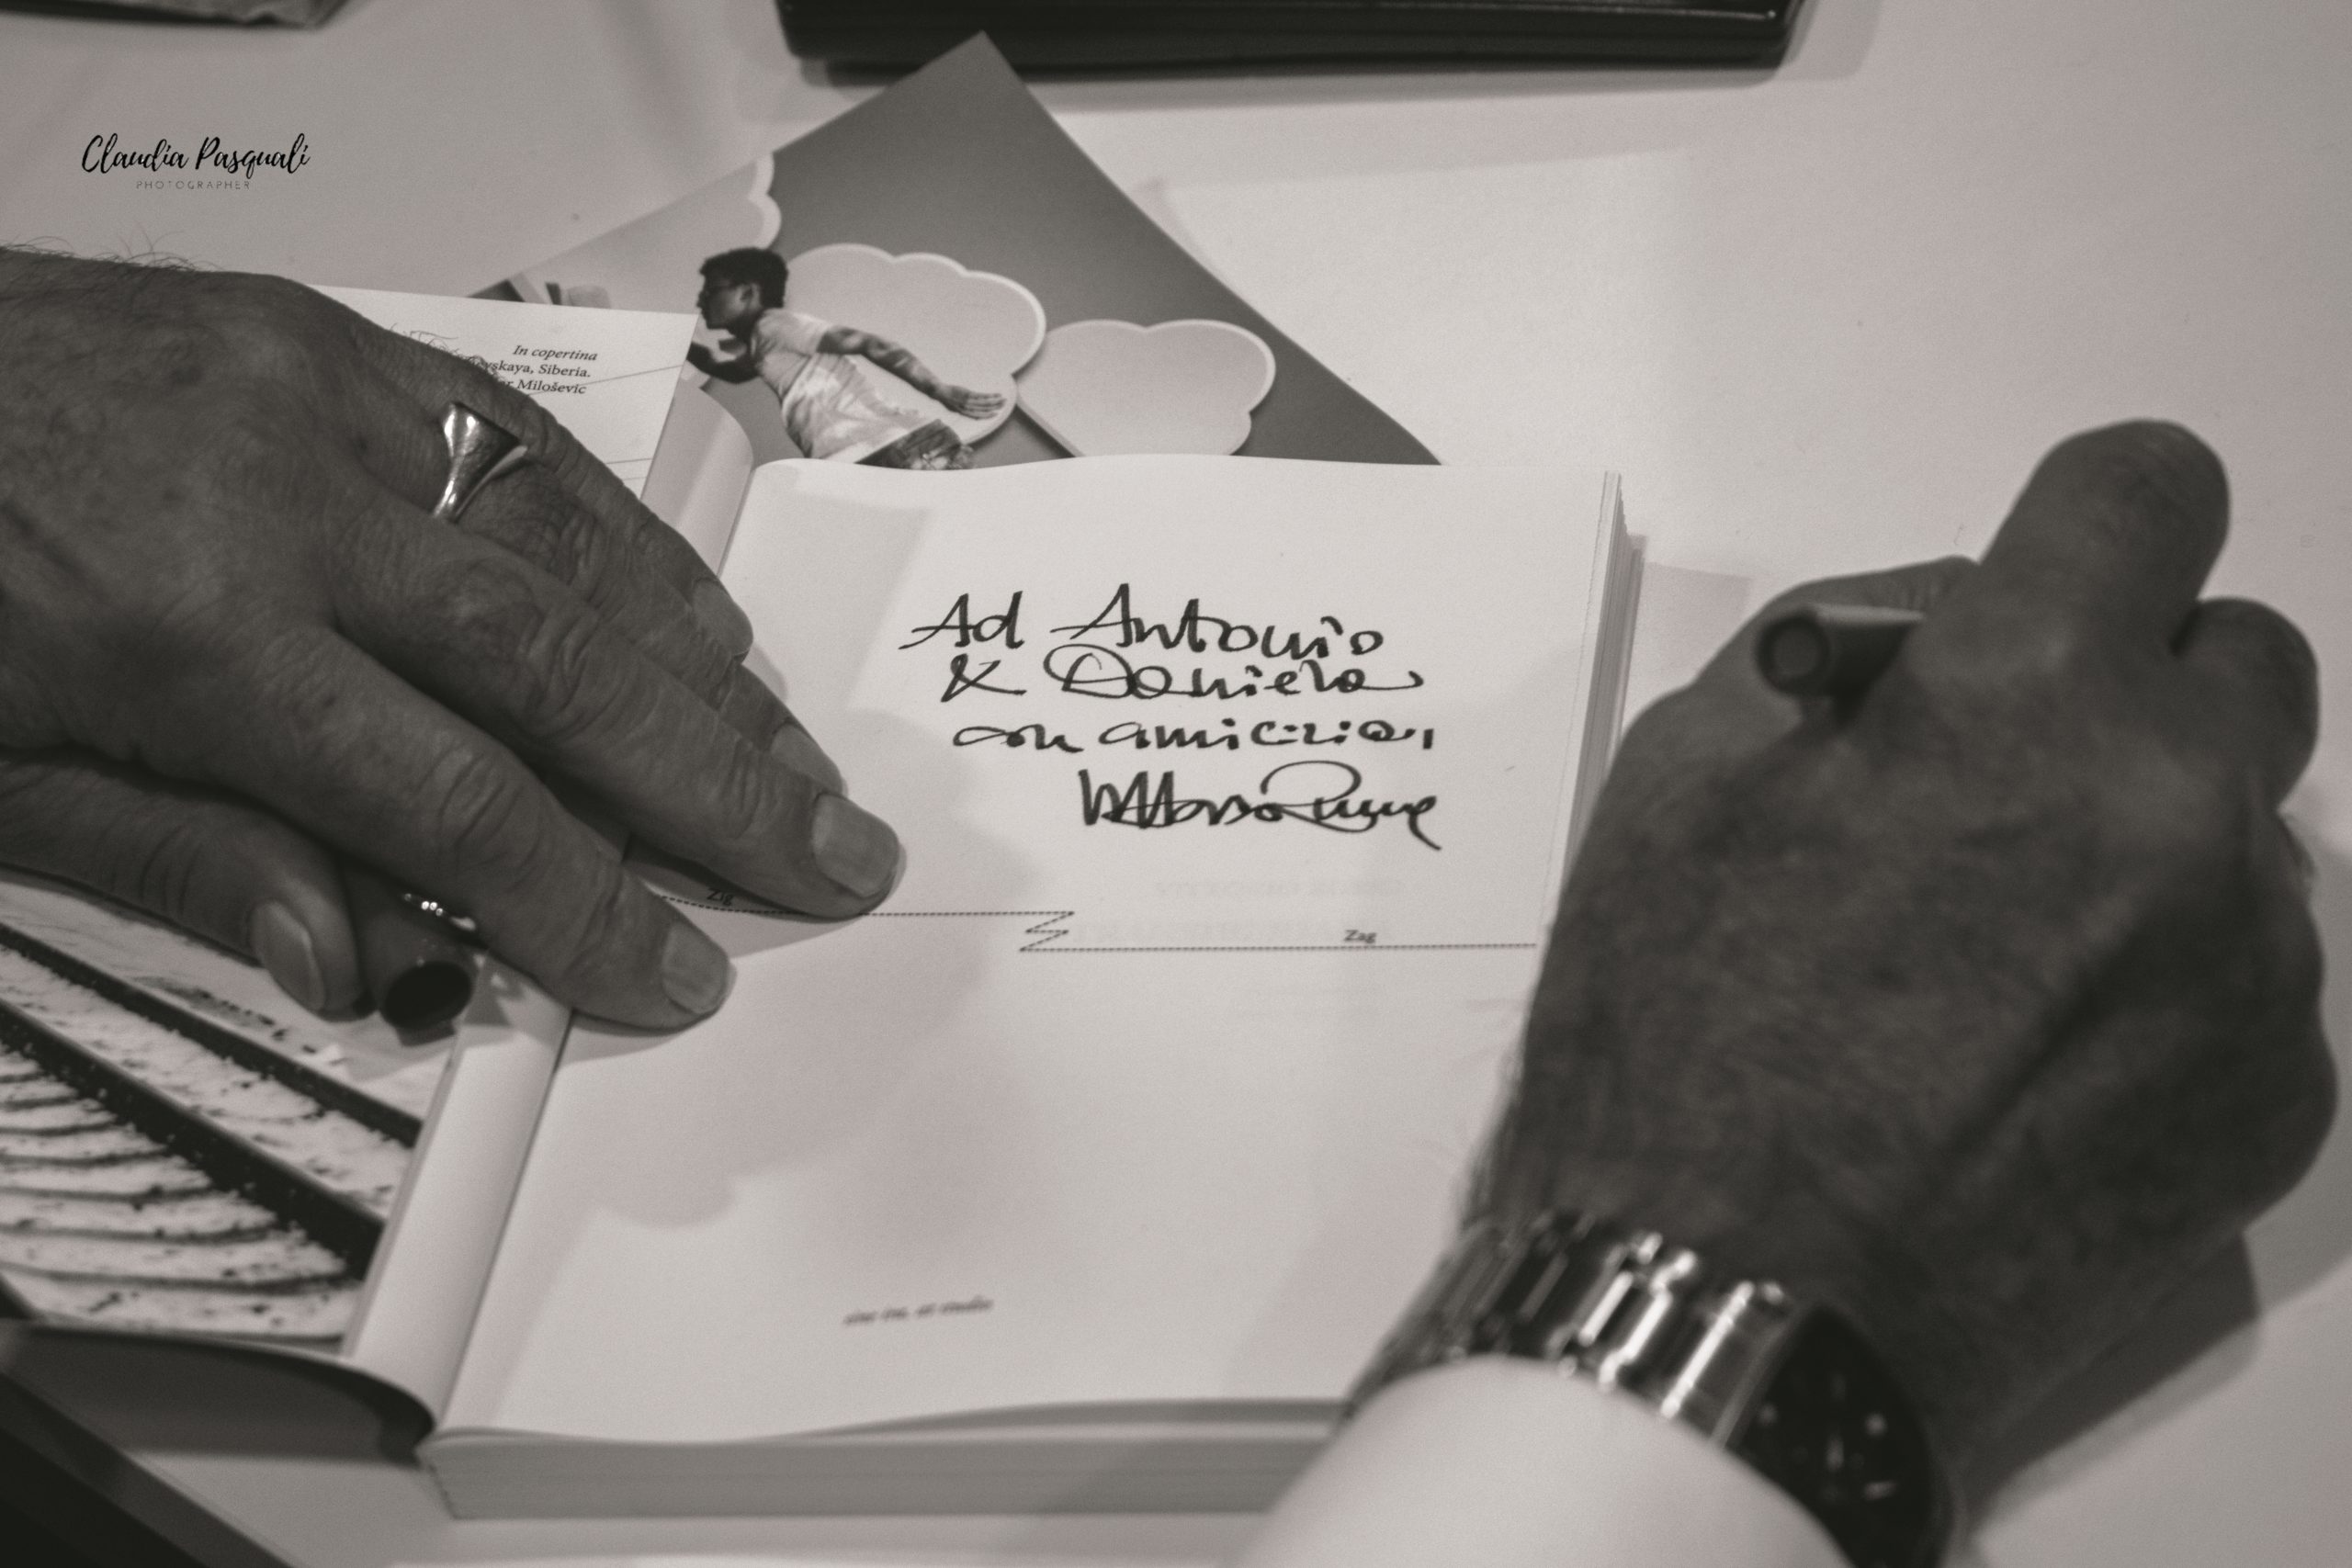 Claudia Pasquali
PHOTOGRAPHER
In copertina
skaya, Siberia.
Milošević
Ad Antonio
& Daniela
con amicizia,
Zig
Zag
sine ira, et studio